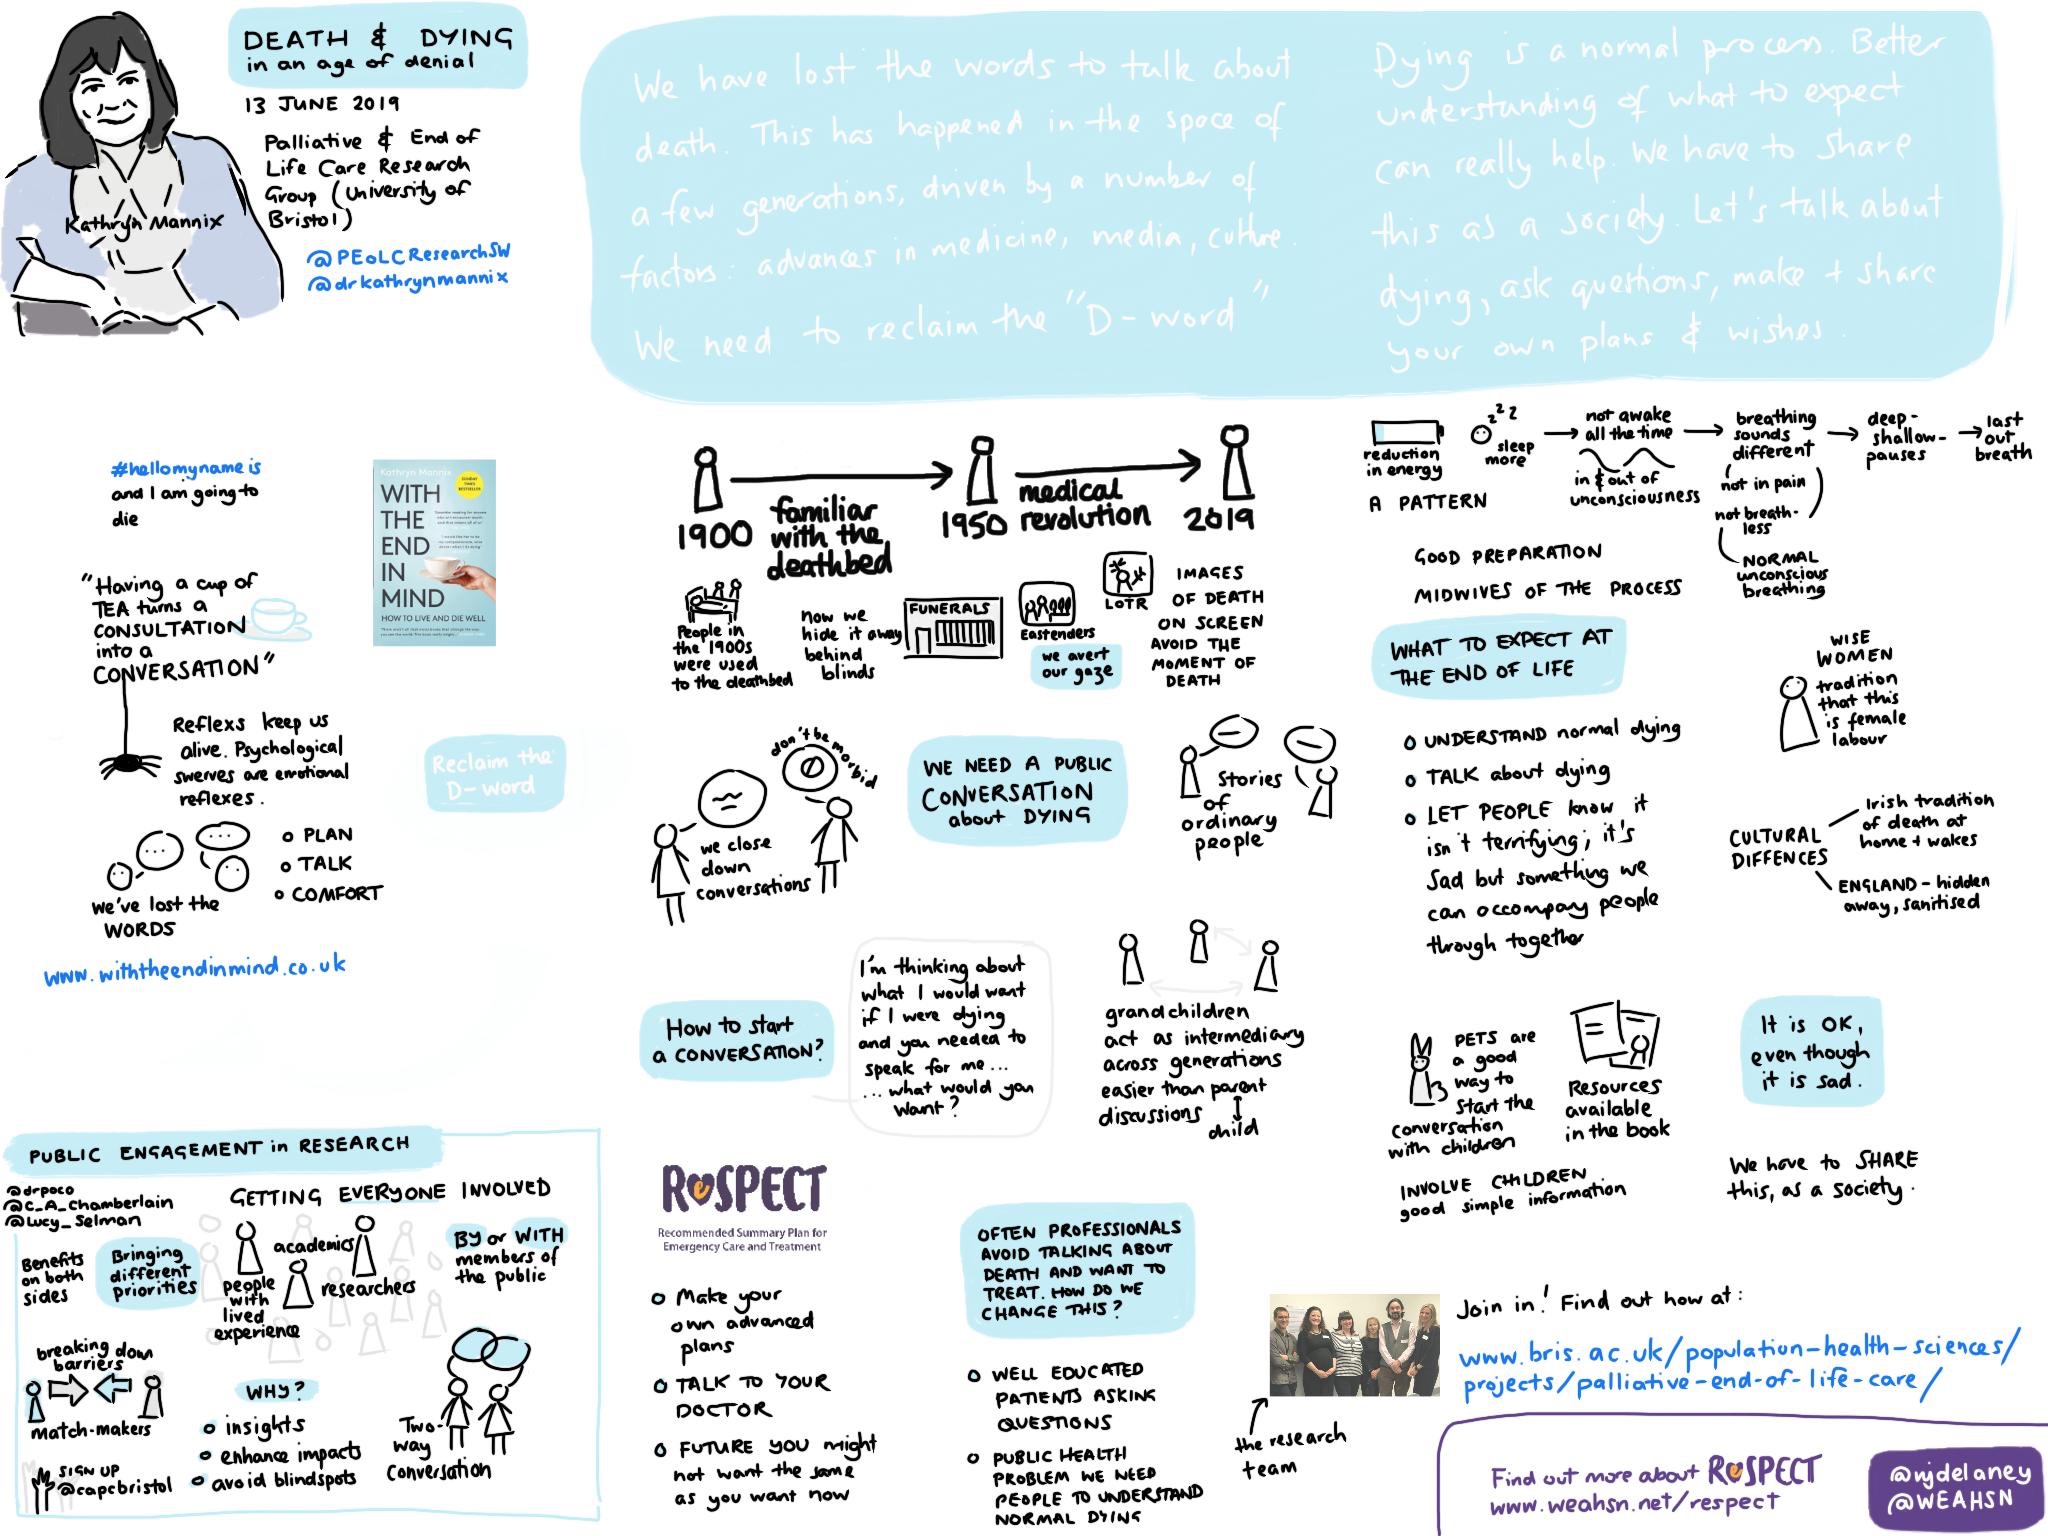 DEATH & DYING
in an age of denial
13 JUNE 2019
Palliative & End of
Life Care Research
Group (University of
Bristol)
Kathryn Mannix
@PEoLCResearchSW
@drkathrynmannix
We have lost the words to talk about
death. This has happened in the space of
a few generations, driven by a number of
factors: advances in medicine, media, culture.
We need to reclaim the "D-word"
Dying is a normal process. Better
understanding of what to expect
can really help. We have to share
this as a society. Let's talk about
dying, ask questions, make + share
your own plans & wishes.
#hellomynameis
and I am going to
die
Kathryn Mannix
WITH
THE
END
IN
MIND
HOW TO LIVE AND DIE WELL
"Having a cup of
TEA turns a
CONSULTATION
into a
CONVERSATION"
Reflexs keep us
alive. Psychological
swerves are emotional
reflexes.
Reclaim the
D-word
we've lost the
WORDS
PLAN
TALK
COMFORT
www.withtheendinmind.co.uk
1900
familiar
with the
deathbed
1950
medical
revolution
2019
People in
the 1900s
were used
to the deathbed
now we
hide it away
behind
blinds
FUNERALS
Eastenders
we avert
our gaze
LOTR
IMAGES
OF DEATH
ON SCREEN
AVOID THE
MOMENT OF
DEATH
don't be morbid
we close
down
conversations
WE NEED A PUBLIC
CONVERSATION
about DYING
Stories
of
ordinary
people
How to start
a CONVERSATION?
I'm thinking about
what I would want
if I were dying
and you needed to
speak for me...
...what would you
want?
grandchildren
act as intermediary
across generations
easier than parent
discussions
child
reduction
in energy
zzz
sleep
more
not awake
all the time
in & out of
unconsciousness
breathing
sounds
different
not in pain
not breath-
less
NORMAL
unconscious
breathing
deep-
shallow-
pauses
last
out
breath
A PATTERN
GOOD PREPARATION
MIDWIVES OF THE PROCESS
WHAT TO EXPECT AT
THE END OF LIFE
UNDERSTAND normal dying
TALK about dying
LET PEOPLE know it
isn't terrifying; it's
Sad but something we
can accompay people
through together
WISE
WOMEN
tradition
that this
is female
labour
CULTURAL
DIFFENCES
Irish tradition
of death at
home + wakes
ENGLAND - hidden
away, sanitised
PETS are
a good
way to
start the
conversation
with children
Resources
available
in the book
INVOLVE CHILDREN
good simple information
It is OK,
even though
it is sad.
We have to SHARE
this, as a society.
PUBLIC ENGAGEMENT in RESEARCH
@drpoco
@C_A_Chamberlain
@Lucy_Selman
GETTING EVERYONE INVOLVED
Benefits
on both
sides
Bringing
different
priorities
people
with
lived
experience
academics
researchers
BY or WITH
members of
the public
breaking down
barriers
match-makers
SIGN UP
@capcbristol
WHY?
insights
enhance impacts
avoid blindspots
Two-
way
conversation
ReSPECT
Recommended Summary Plan for
Emergency Care and Treatment
Make your
own advanced
plans
TALK TO YOUR
DOCTOR
FUTURE YOU might
not want the same
as you want now
OFTEN PROFESSIONALS
AVOID TALKING ABOUT
DEATH AND WANT TO
TREAT. HOW DO WE
CHANGE THIS?
WELL EDUCATED
PATIENTS ASKING
QUESTIONS
PUBLIC HEALTH
PROBLEM WE NEED
PEOPLE TO UNDERSTAND
NORMAL DYING
the research
team
Join in! Find out how at:
www.bris.ac.uk/population-health-sciences/
projects/palliative-end-of-life-care/
Find out more about ReSPECT
www.weahsn.net/respect
@njdelaney
@WEAHSN